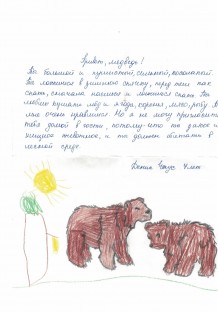 Привет, медведь!
Ты большой и пушистый, сильный, косолапый.
Ты ложишься в зимнюю спячку, перед тем как
спать, сначала и ложишься спать. Ты
любишь кушать мёд и ягоды, коренья, мясо, рыбу. Ты
мне очень нравишься. Но я не могу пригласить
тебя домой в гости, потому что ты дикое и
хищное животное, и ты должен обитать в
лесной среде.